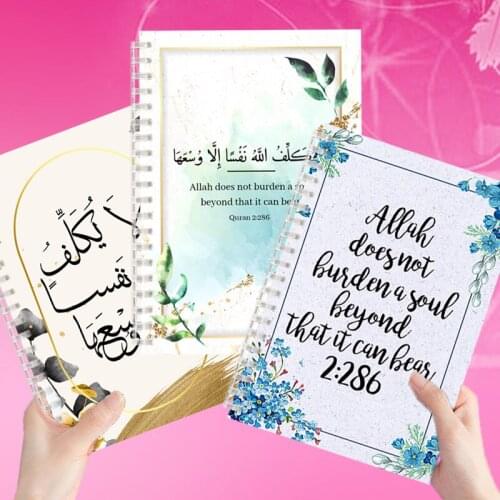 لَا يُكَلِّفُ
نَفْسًا
وُسْعَهَا
اللَّهُ نَفْسًا إِلَّا وُسْعَهَا
Allah does not burden a
beyond that it can
Quran 2:286
Allah
does not
burden a soul
beyond
that it can bear
2:286